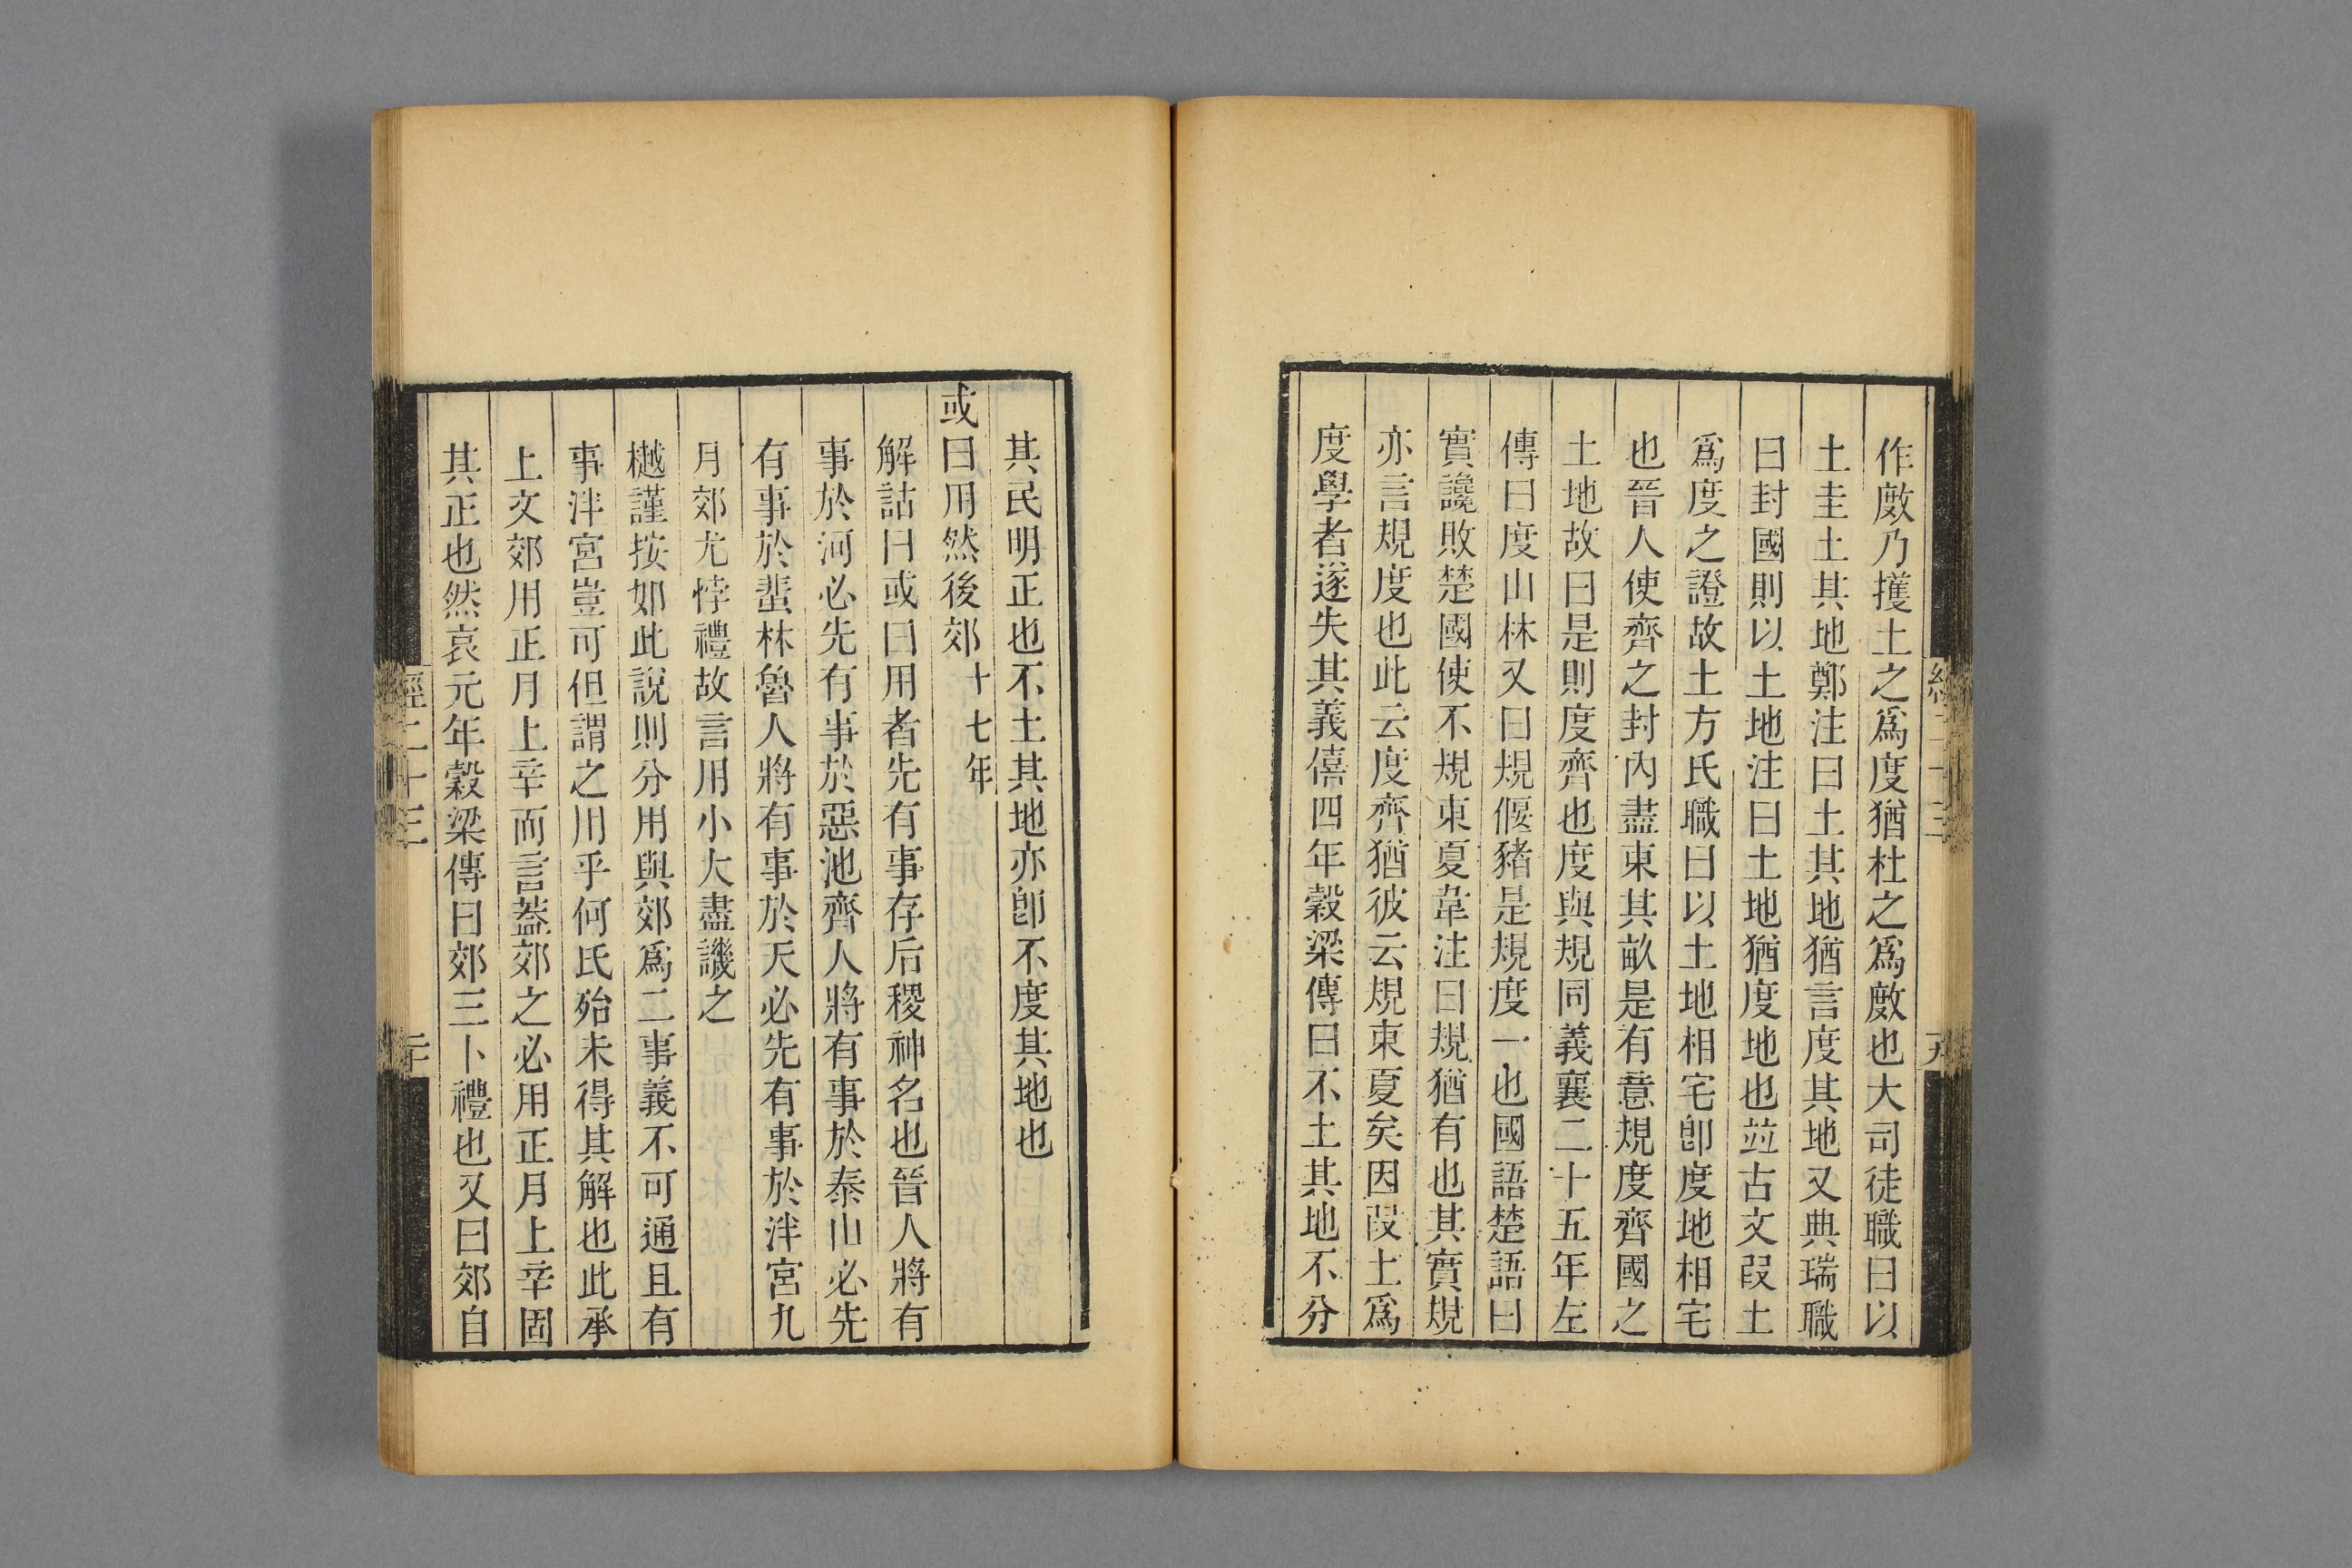 作敷乃擭土之為度猶杜之為敷也大司徒職曰以
土圭土其地鄭注曰土其地猶言度其地又典瑞職
曰封國則以土地注曰土地猶度地也竝古文叚土
爲度之證故土方氏職曰以土地相宅卽度地相宅
也晉人使齊之封內盡東其畝是有意規度齊國之
土地故曰是則度齊也度與規同義襄二十五年左
傳曰度山林又曰規偃豬是規度一也國語楚語曰
實讒敗楚國使不規東夏韋注曰規猶有也其實規
亦言規度也此云度齊猶彼云規東夏矣因叚土爲
度學者遂失其義僖四年穀梁傳曰不土其地不分
其民明正也不土其地亦卽不度其地也
或曰用然後郊十七年
解詁曰或曰用者先有事存后稷神名也晉人將有
事於河必先有事於惡池齊人將有事於泰山必先
有事於蜚林魯人將有事於天必先有事於泮宮九
月郊尤悖禮故言用小大盡譏之
樾謹按如此說則分用與郊爲二事義不可通且有
事泮宮豈可但謂之用乎何氏殆未得其解也此承
上文郊用正月上辛而言葢郊之必用正月上辛固
其正也然哀元年穀梁傳曰郊三卜禮也又曰郊自
經二十三